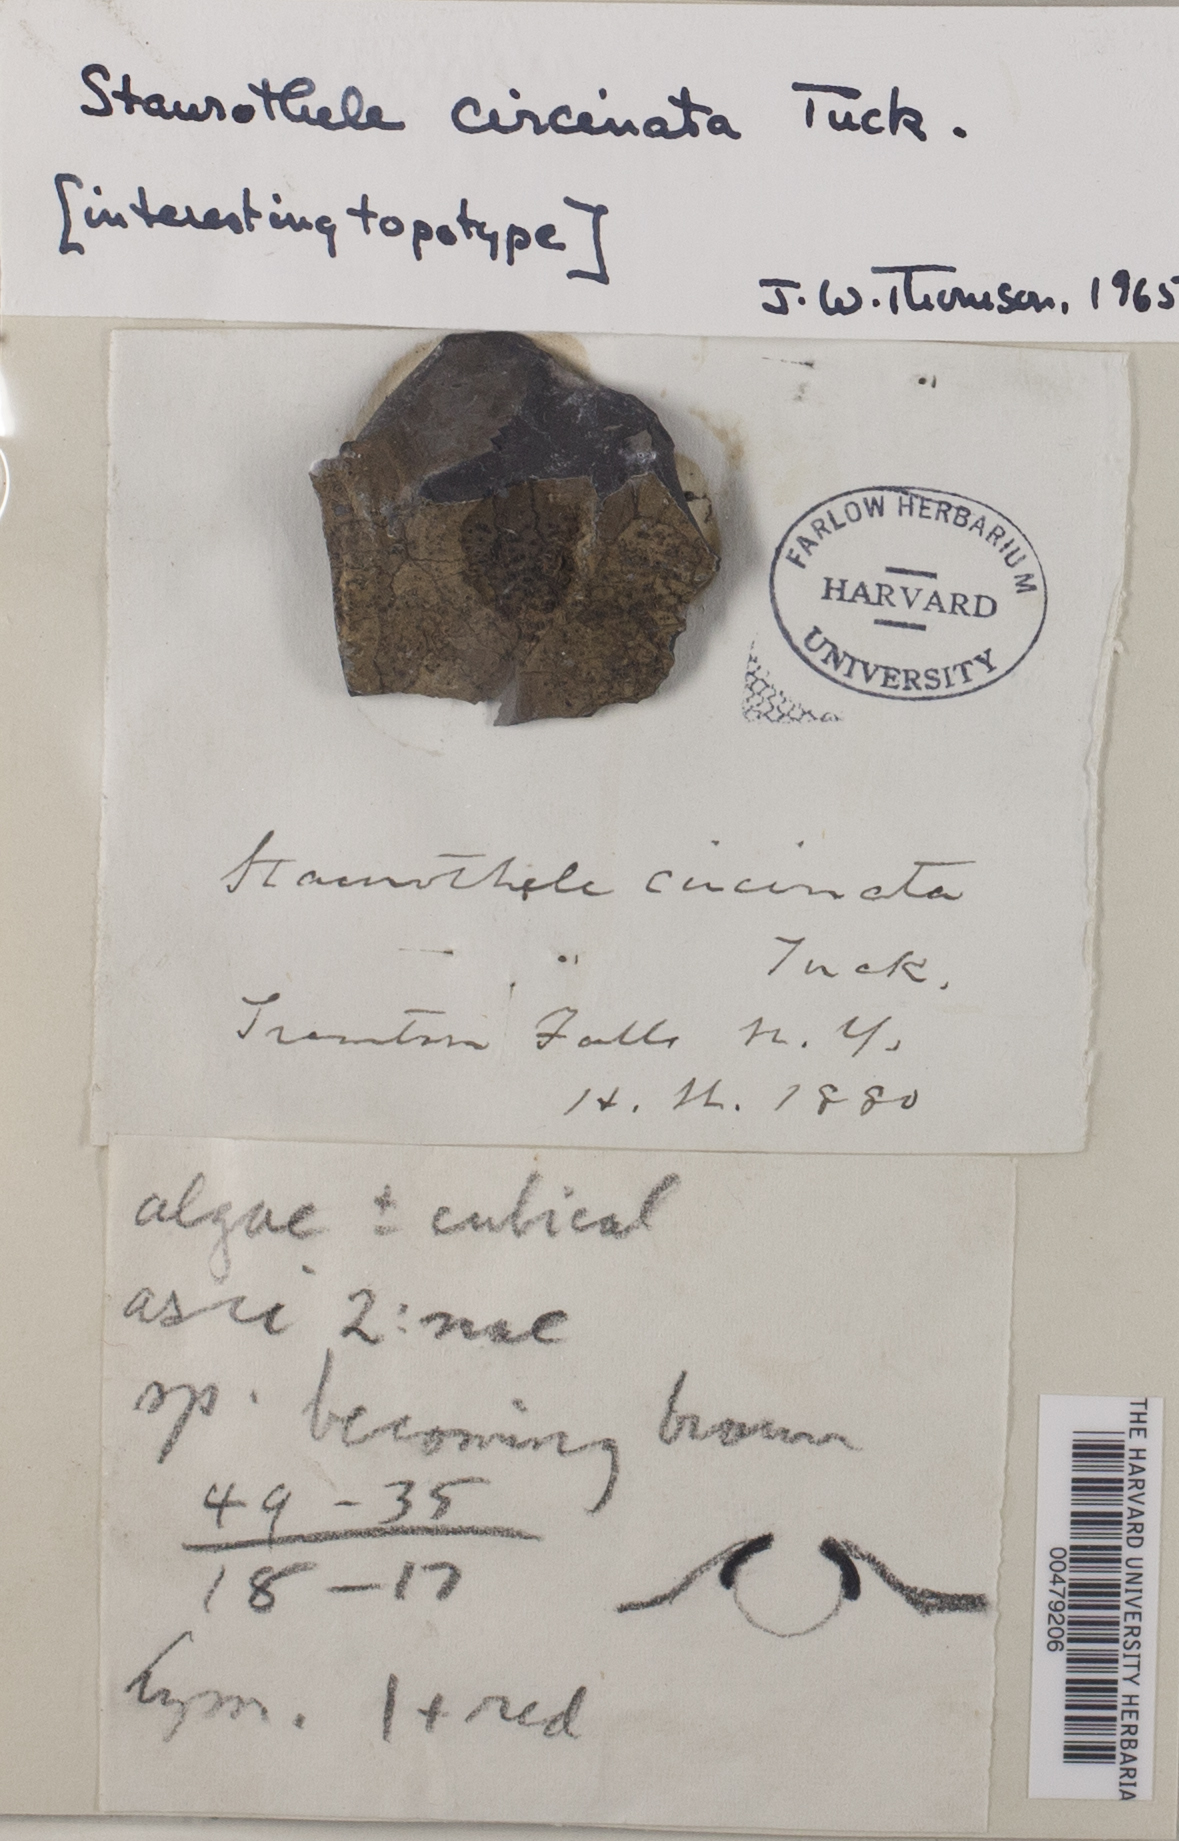 Staurothele circinata Tuck.
[interesting topotype]
J. W. Thomson, 1965
FARLOW HERBARIUM
HARVARD
UNIVERSITY
Staurothele circinata
Tuck.
Trenton Falls N. Y.
H. W. 1880
algae ± cubical
asci 2:nae
sp. becoming brown
49 - 35
18 - 17
hym. I + red
THE HARVARD UNIVERSITY HERBARIA
00479206